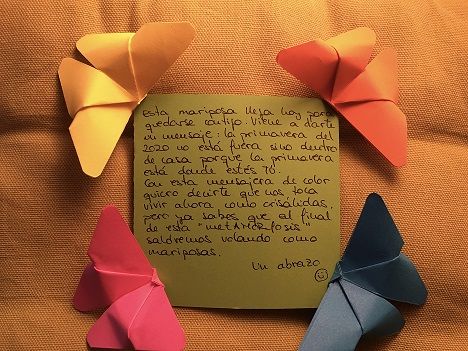 Esta mariposa llega hoy para
quedarse contigo. Viene a darte
un mensaje: la primavera del
2020 no está fuera sino dentro
de casa porque la primavera
está donde estés TÚ.
Con esta mensajera de color
quiero decirte que nos toca
vivir ahora como crisálidas,
pero ya sabes que al final
de esta "metAMORfosis"
saldremos volando como
mariposas.
Un abrazo